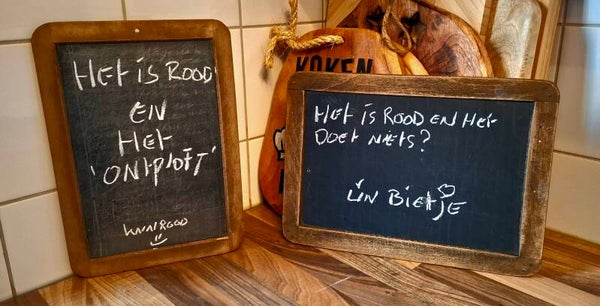 HEt is ROOD
EN
HEt
'ONtplOft'
KNNIROOD
KOKEN
HEt is ROOD EN HEt
DOEt NiEtS?
úN BiEtjE